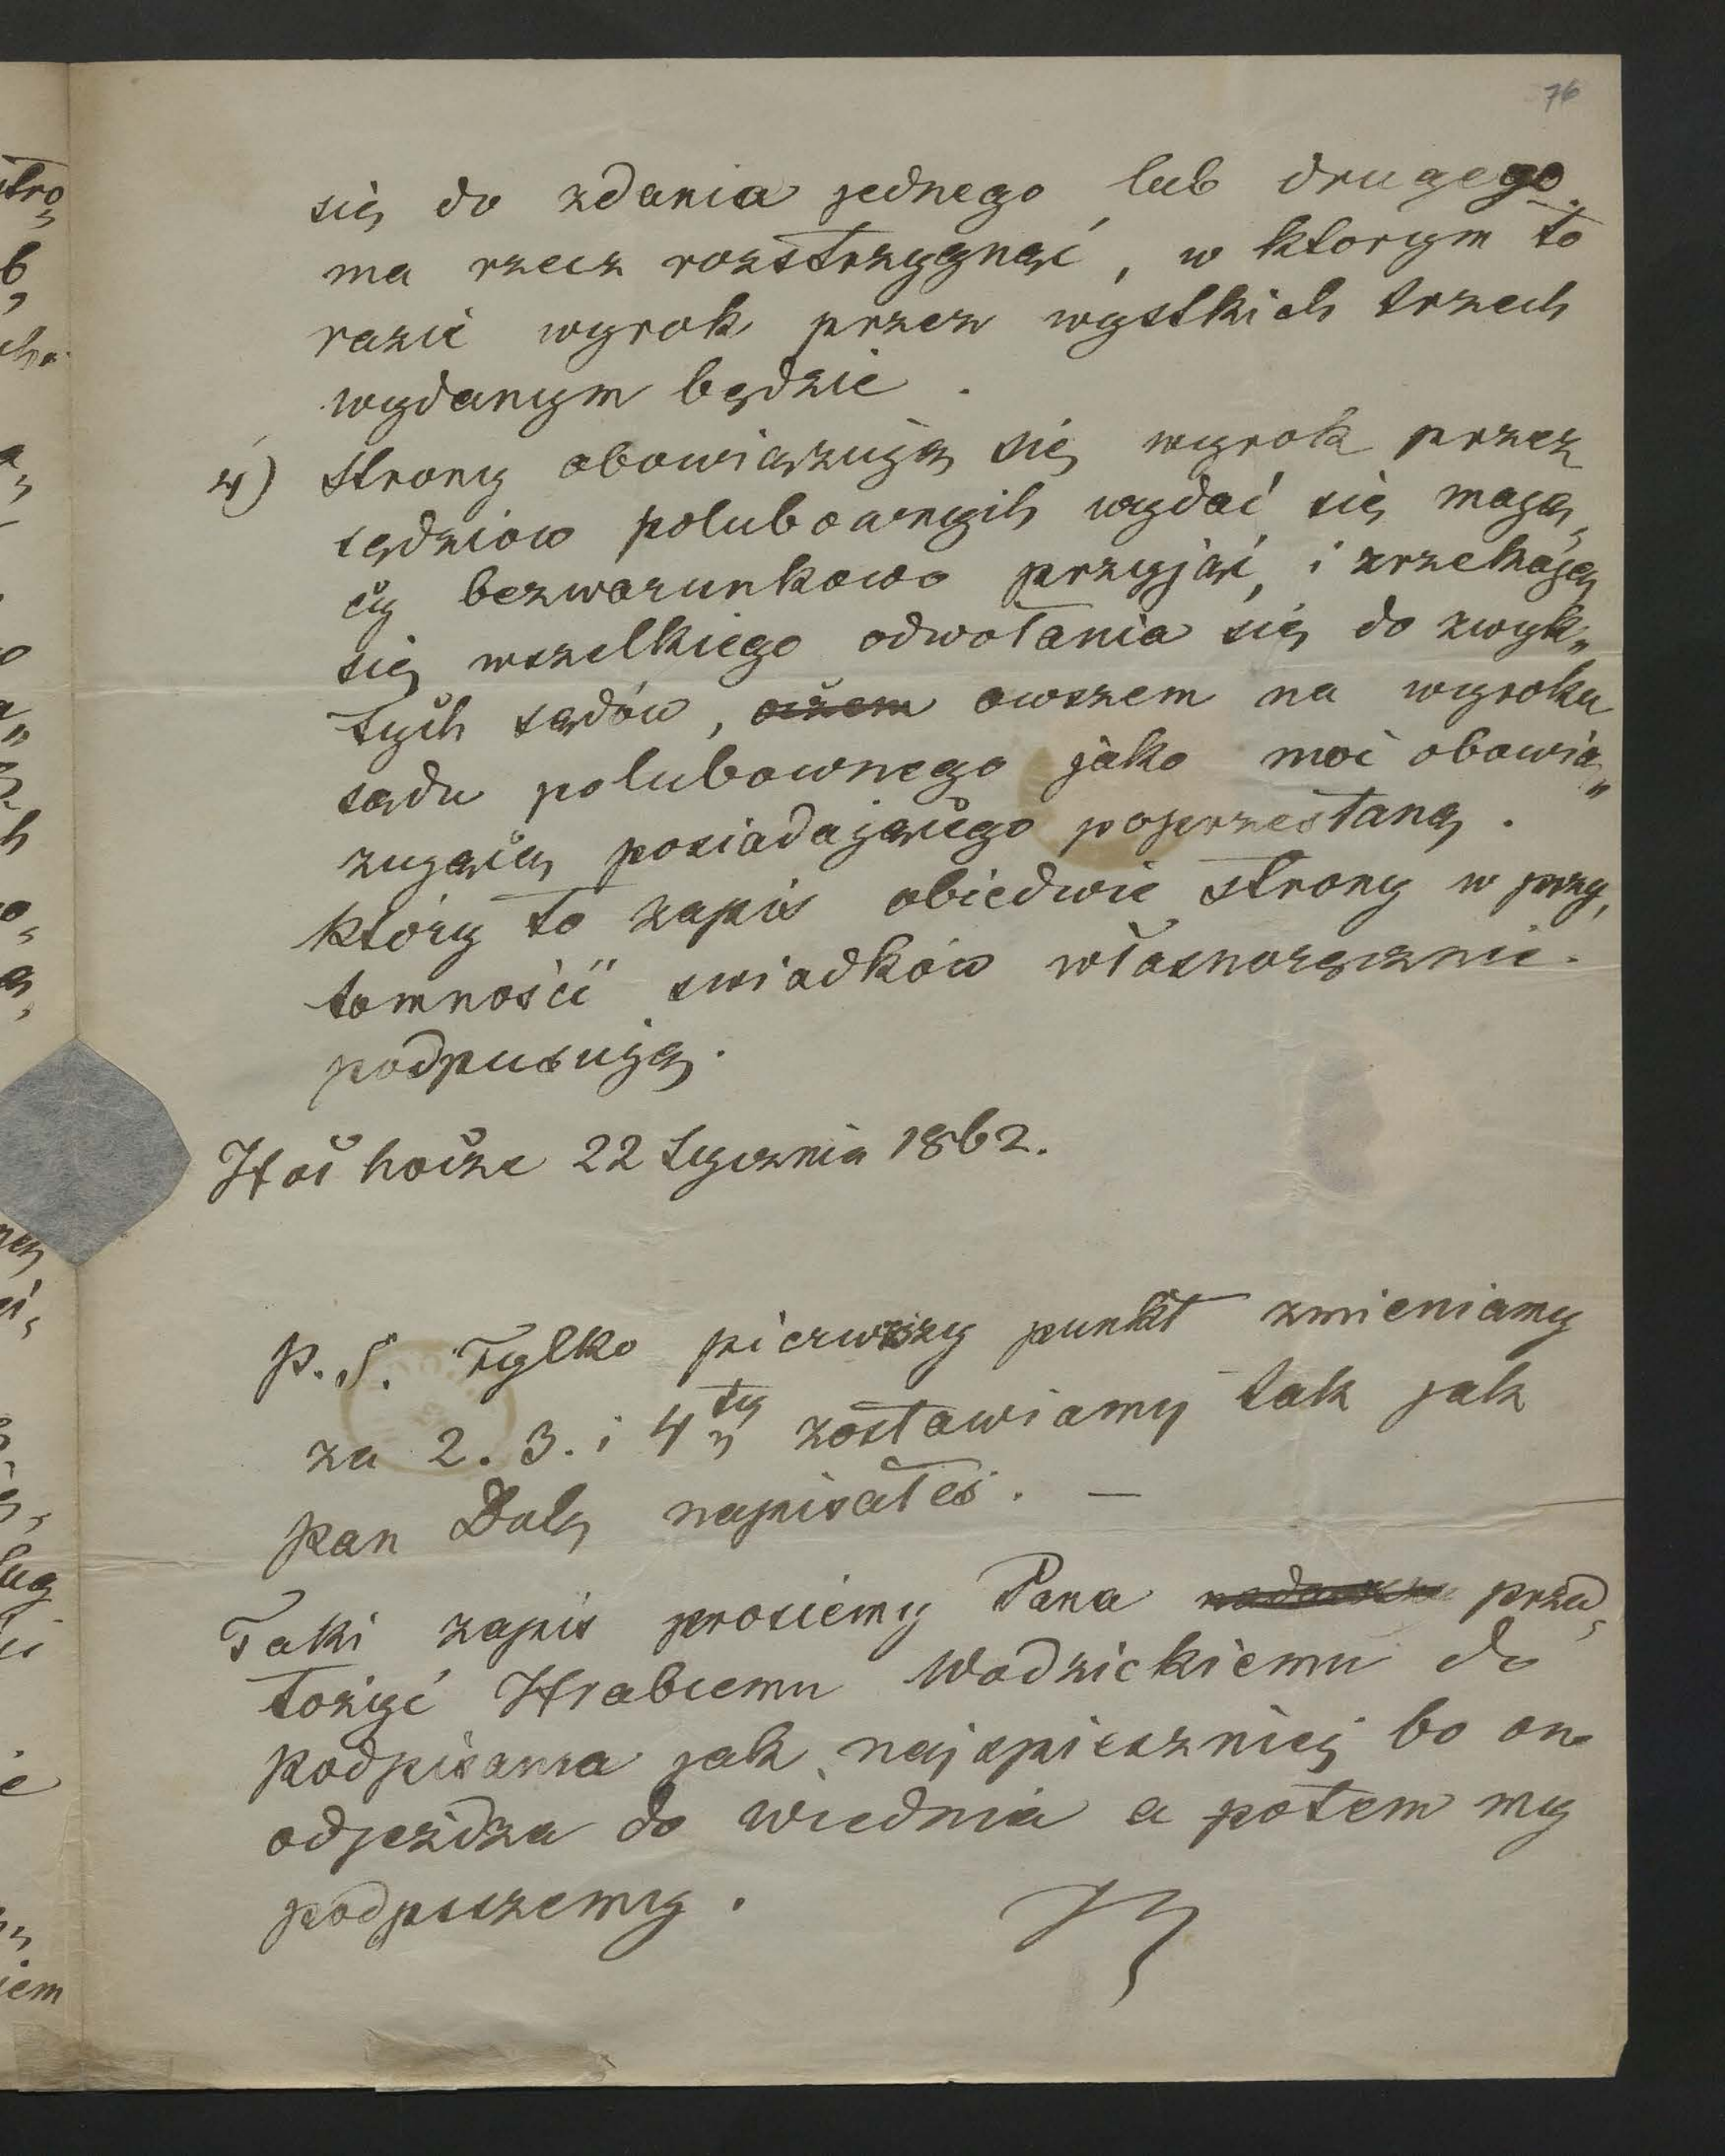 76
się do zdania jednego lub drugego
ma rzecz rozstrzygnąć, w ktorym to
razie wyrok przez wystkich trzech
wydanym będzie.
4) Strony obowiązują się wyrok przez
sędziow polubownych wydać się mają„
cy bezwarunkowo przyjąć, i zrzekają
się wszelkiego odwołania się do zwyk„
łych sądów, owszem na wyroku
sądu polubownego jako moc obowią„
zującą posiadającego poprzestaną.
który to zapis obiedwie strony w przy„
tomności swiadków własnoręcznie
podpisują.
22 Stycznia 1862.
P.S. Tylko pierwszy punkt zmieniamy
za 2. 3. i 4ty zostawiamy tak jak
pan napisałeś. —
Taki zapis prosiemy Pana przed„
łożyć Hrabiemu Wodzickiemu do
podpisania jak najspieszniej bo on
odjeżdza do Wiednia a potem my
podpiszemy.